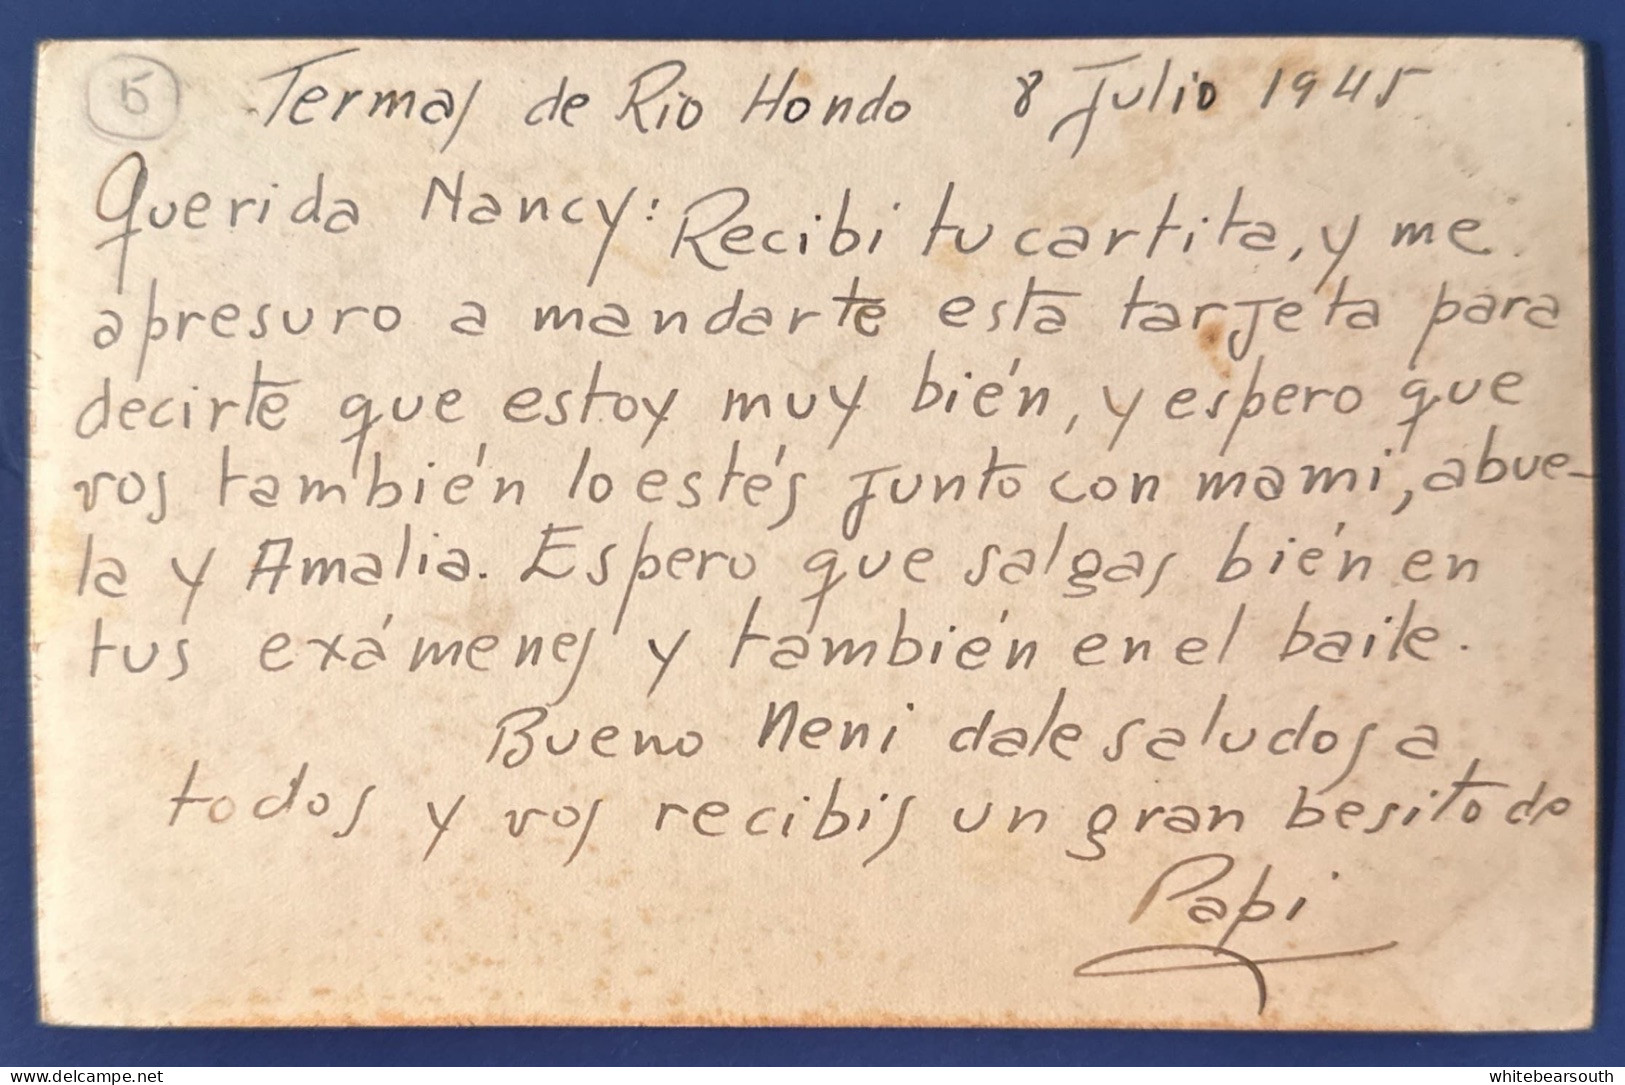 5
Termas de Rio Hondo 8 Julio 1945
Querida Nancy: Recibi tu cartita, y me
apresuro a mandarte esta tarjeta para
decirte que estoy muy bién, y espero que
vos también lo estés junto con mami, abue-
la y Amalia. Espero que salgas bién en
tus exámenes y también en el baile.
Bueno Neni dale saludos a
todos y vos recibis un gran besito de
Papi
www.delcampe.net
whitebearsouth